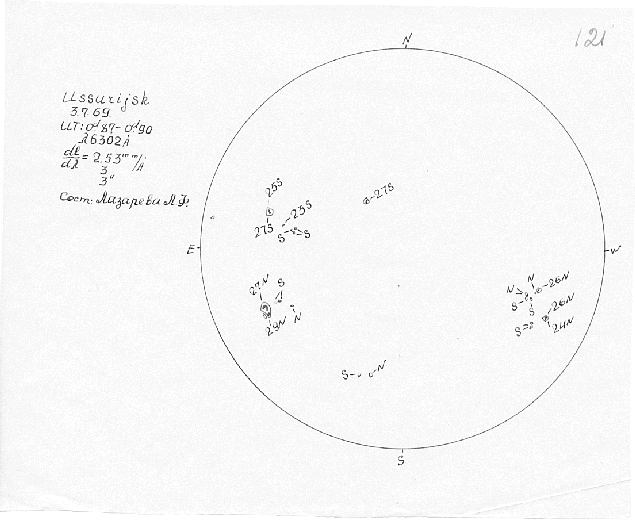 121
N
Ussurijsk
3.7.69
UT: 0ᵈ87-0ᵈ90
λ6302Å
dl/dλ = 2.53 mm/Å
3
3"
Сост: Лазарева Л.Ф.
25S
27S
23S
27S
S
S
E
W
27N
S
28N
N
N
N
26N
S
S
26N
S
24N
S
N
S